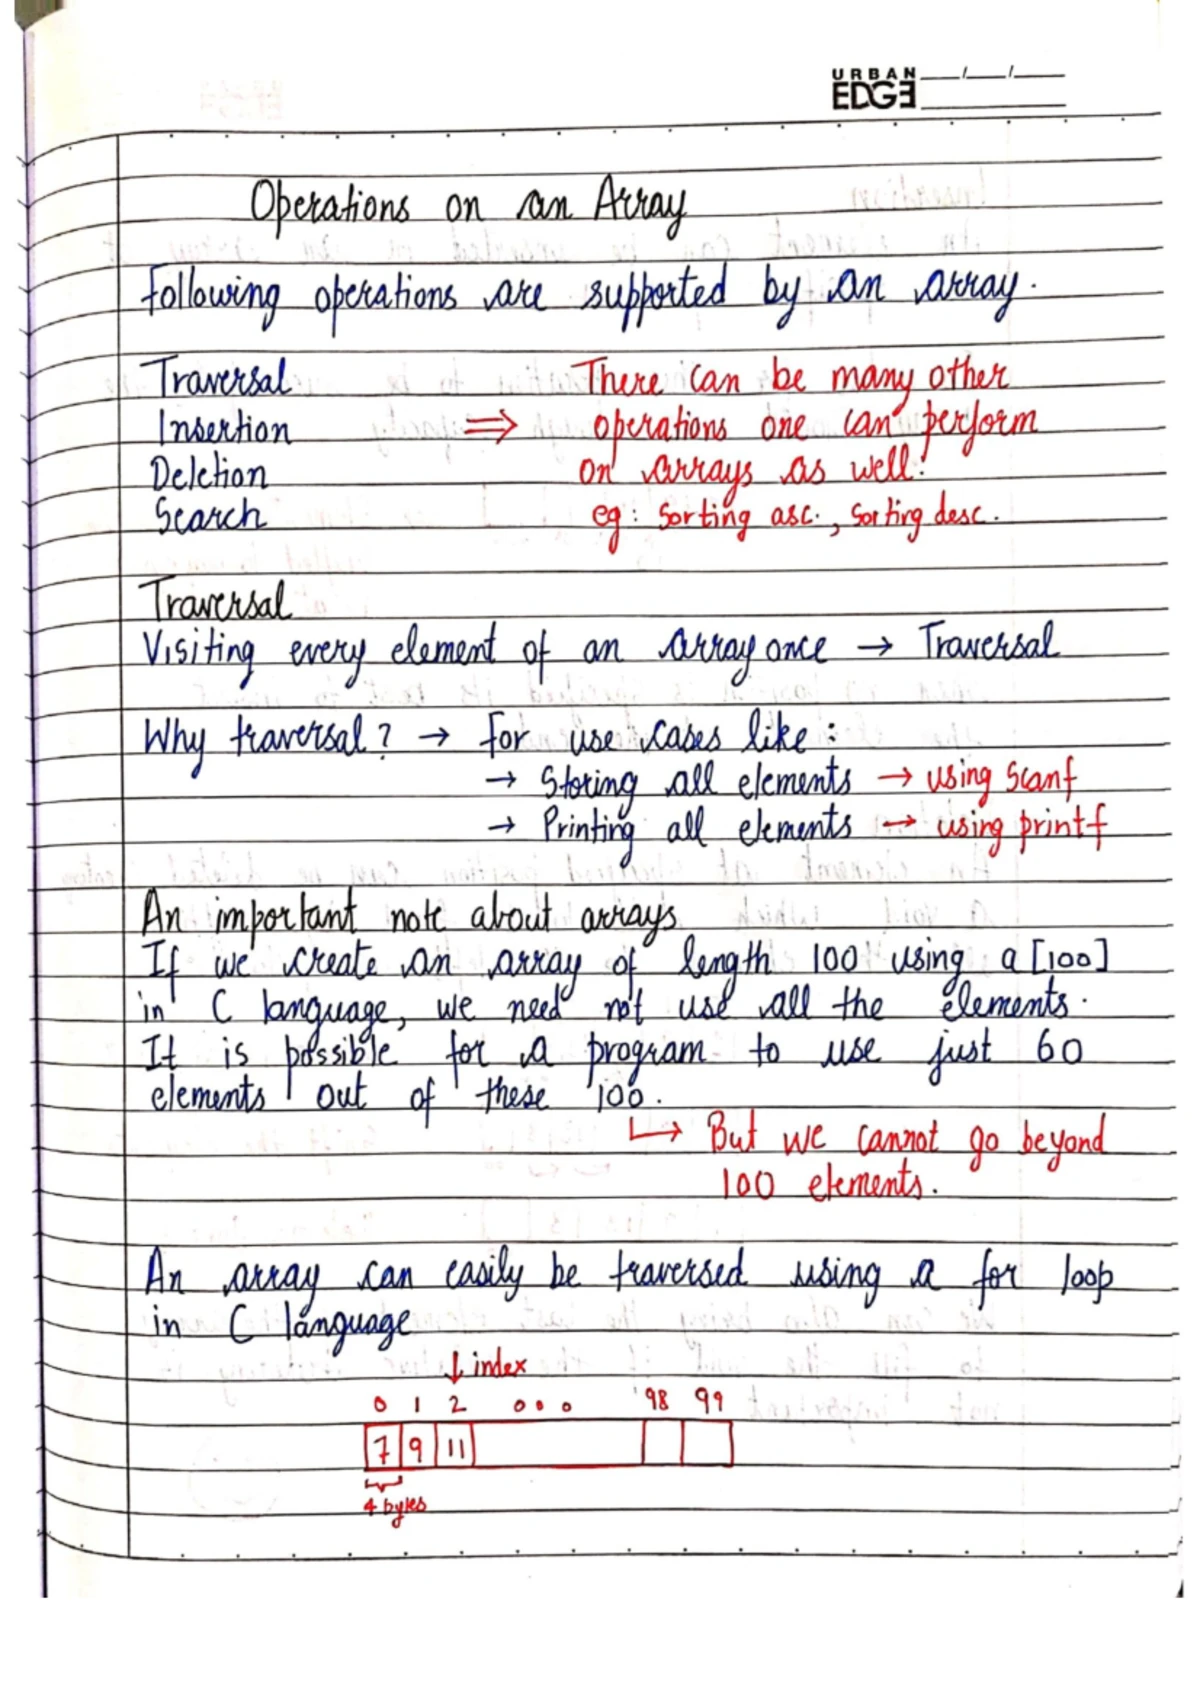 URBAN
EDGE
Operations on an Array
Following operations are supported by an array.
Traversal There can be many other
Insertion ⇒ operations one can perform
Deletion on arrays as well.
Search eg: Sorting asc., Sorting desc.
Traversal
Visiting every element of an array once → Traversal
Why traversal? → For use cases like:
→ Storing all elements → using Scanf
→ Printing all elements → using printf
An important note about arrays
If we create an array of length 100 using a[100]
in C language, we need not use all the elements.
It is possible for a program to use just 60
elements out of these 100.
↳ But we cannot go beyond
100 elements.
An array can easily be traversed using a for loop
in C language
↓ index
0 1 2 ... 98 99
7 9 11
4 bytes